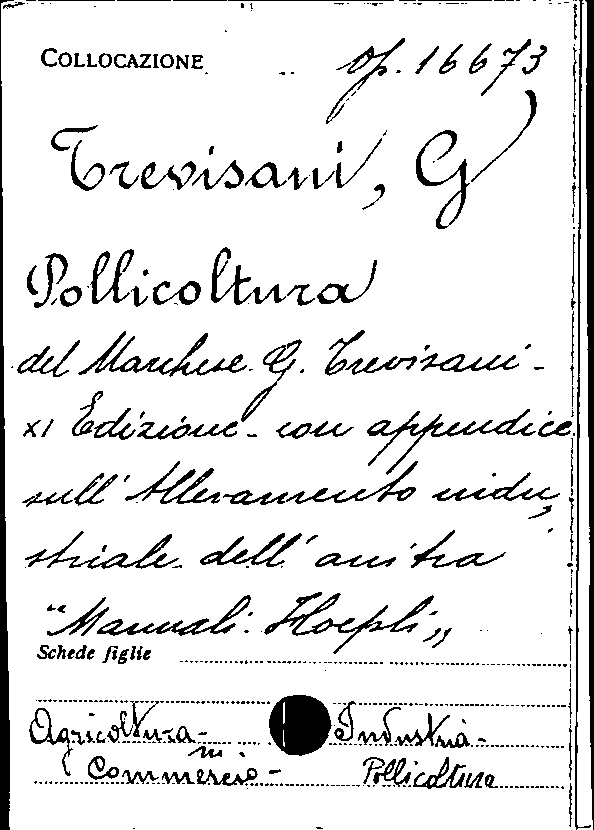 COLLOCAZIONE Op. 16673
Trevisani, G
Pollicoltura
del Marchese G. Trevisani -
XI Edizione - con appendice
sull' Allevamento indu,
striale dell' anitra
"Manuali Hoepli„
Schede figlie
Agricoltura - Industria -
Commercio - Pollicoltura